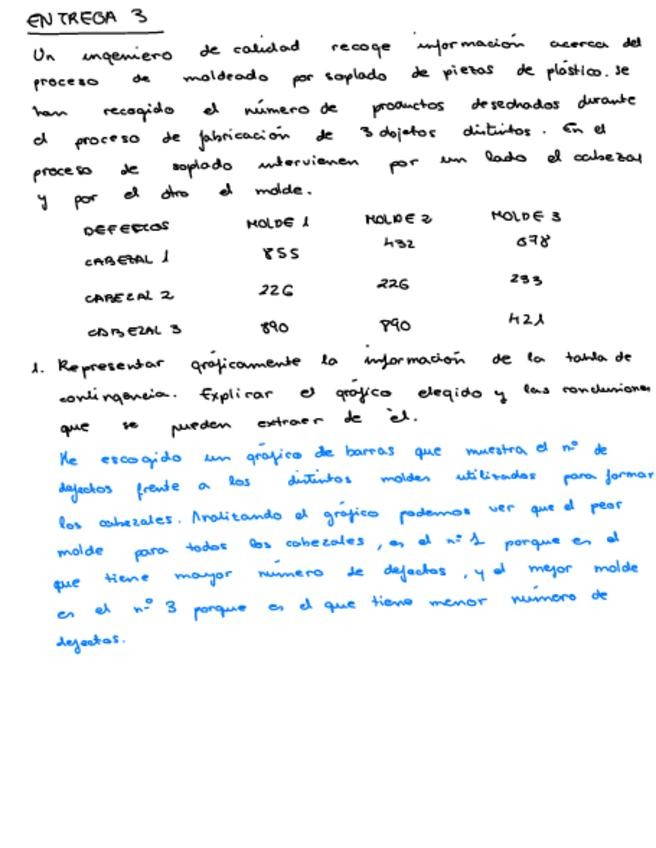 ENTREGA 3
Un ingeniero de calidad recoge información acerca del
proceso de moldeado por soplado de piezas de plástico. Se
han recogido el número de productos desechados durante
el proceso de fabricación de 3 objetos distintos. En el
proceso de soplado intervienen por un lado el cabezal
y por el otro el molde.
DEFECTOS MOLDE 1 MOLDE 2 MOLDE 3
CABEZAL 1 855 432 678
CABEZAL 2 226 226 233
CABEZAL 3 890 890 421
1. Representar gráficamente la información de la tabla de
contingencia. Explicar el gráfico elegido y las conclusiones
que se pueden extraer de él.
He escogido un gráfico de barras que muestra el nº de
defectos frente a los distintos moldes utilizados para formar
los cabezales. Analizando el gráfico podemos ver que el peor
molde para todos los cabezales, es el nº 1 porque es el
que tiene mayor número de defectos, y el mejor molde
es el nº 3 porque es el que tiene menor número de
defectos.